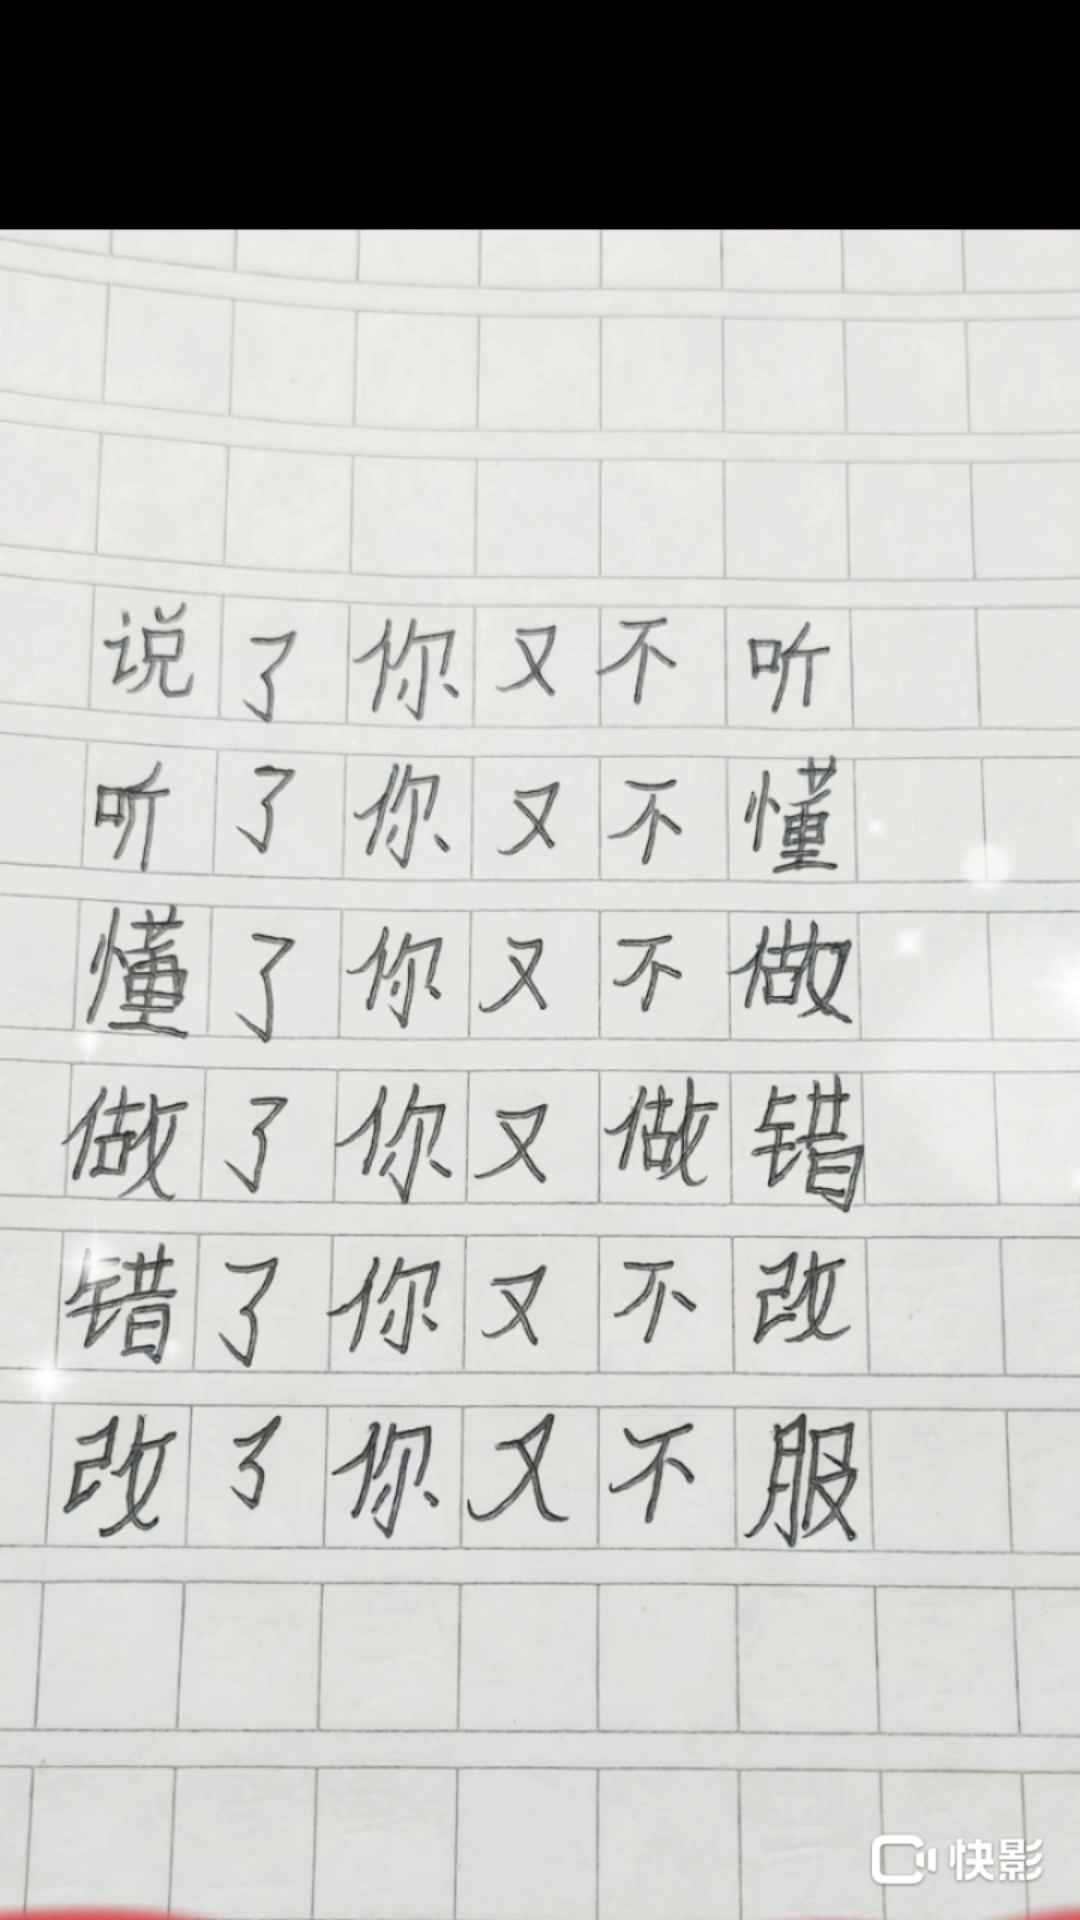 说了你又不听
听了你又不懂
懂了你又不做
做了你又做错
错了你又不改
改了你又不服
快影